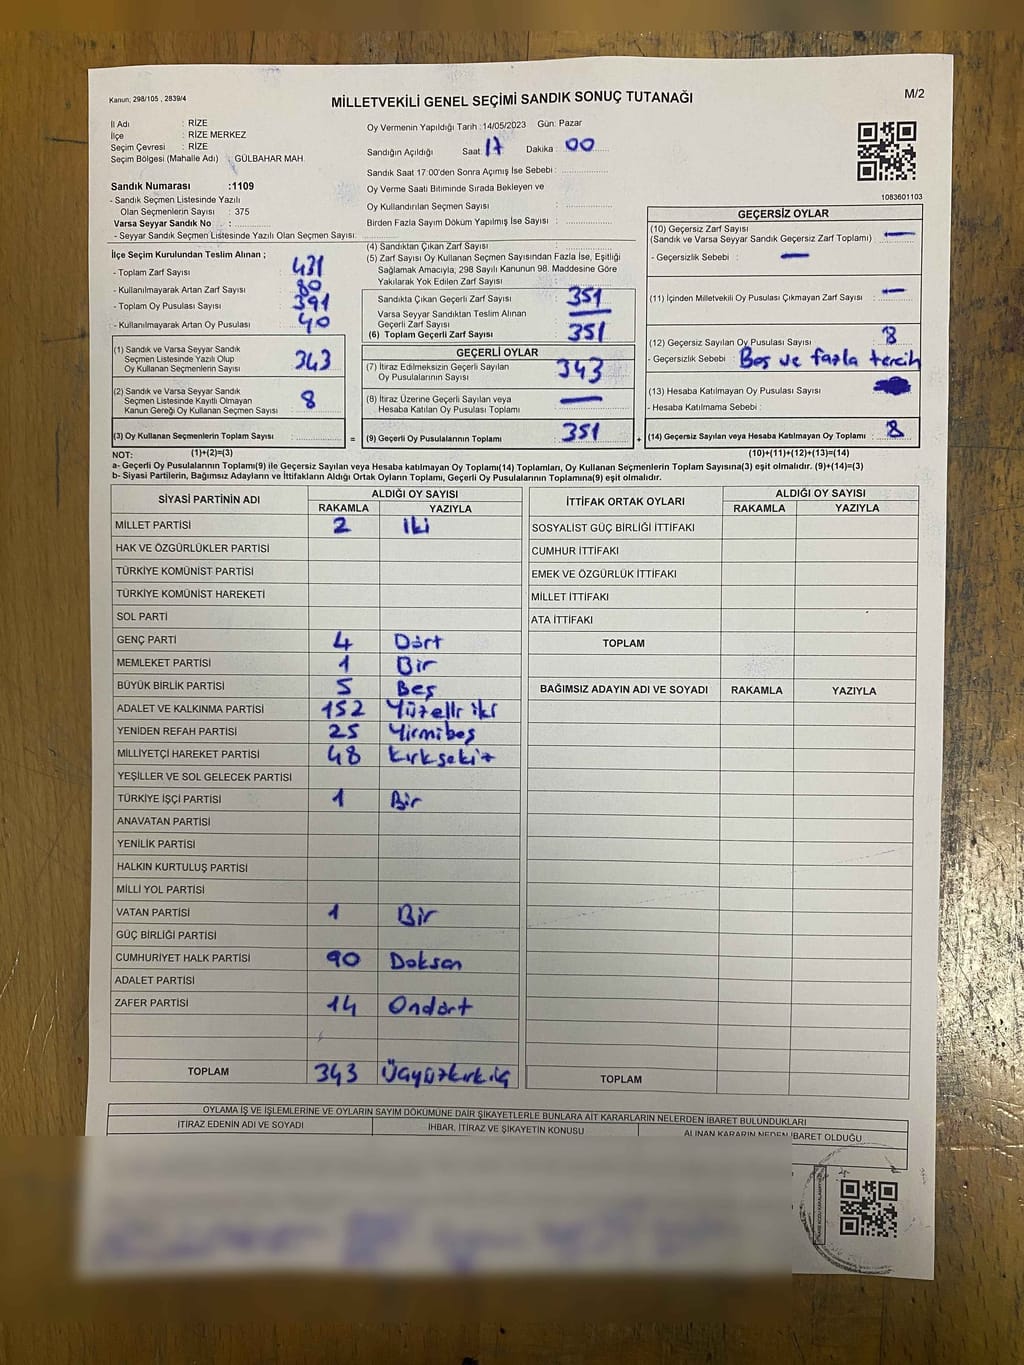 Kanun; 298/105 , 2839/4
MİLLETVEKİLİ GENEL SEÇİMİ SANDIK SONUÇ TUTANAĞI
M/2
İl Adı : RİZE
İlçe : RİZE MERKEZ
Seçim Çevresi : RİZE
Seçim Bölgesi (Mahalle Adı) : GÜLBAHAR MAH.
Oy Vermenin Yapıldığı Tarih :14/05/2023 Gün: Pazar
Sandığın Açıldığı Saat 17 Dakika : 00
Sandık Saat 17:00'den Sonra Açımış İse Sebebi :
Sandık Numarası :1109
- Sandık Seçmen Listesinde Yazılı
Olan Seçmenlerin Sayısı : 375
Varsa Seyyar Sandık No :
- Seyyar Sandık Seçmen Listesinde Yazılı Olan Seçmen Sayısı:
Oy Verme Saati Bitiminde Sırada Bekleyen ve
Oy Kullandırılan Seçmen Sayısı :
Birden Fazla Sayım Döküm Yapılmış İse Sayısı :
1083601103
İlçe Seçim Kurulundan Teslim Alınan ;
- Toplam Zarf Sayısı : 431
- Kullanılmayarak Artan Zarf Sayısı : 80
- Toplam Oy Pusulası Sayısı : 391
- Kullanılmayarak Artan Oy Pusulası : 40
(1) Sandık ve Varsa Seyyar Sandık
Seçmen Listesinde Yazılı Olup
Oy Kullanan Seçmenlerin Sayısı : 343
(2) Sandık ve Varsa Seyyar Sandık
Seçmen Listesinde Kayıtlı Olmayan
Kanun Gereği Oy Kullanan Seçmen Sayısı : 8
(3) Oy Kullanan Seçmenlerin Toplam Sayısı :
(4) Sandıktan Çıkan Zarf Sayısı :
(5) Zarf Sayısı Oy Kullanan Seçmen Sayısından Fazla İse, Eşitliği
Sağlamak Amacıyla, 298 Sayılı Kanunun 98. Maddesine Göre
Yakılarak Yok Edilen Zarf Sayısı :
Sandıkta Çıkan Geçerli Zarf Sayısı : 351
Varsa Seyyar Sandıktan Teslim Alınan
Geçerli Zarf Sayısı : —
(6) Toplam Geçerli Zarf Sayısı : 351
GEÇERLİ OYLAR
(7) İtiraz Edilmeksizin Geçerli Sayılan
Oy Pusulalarının Sayısı : 343
(8) İtiraz Üzerine Geçerli Sayılan veya
Hesaba Katılan Oy Pusulası Toplamı : —
= (9) Geçerli Oy Pusulalarının Toplamı : 351
GEÇERSİZ OYLAR
(10) Geçersiz Zarf Sayısı
(Sandık ve Varsa Seyyar Sandık Geçersiz Zarf Toplamı) : —
- Geçersizlik Sebebi : —
(11) İçinden Milletvekili Oy Pusulası Çıkmayan Zarf Sayısı : —
(12) Geçersiz Sayılan Oy Pusulası Sayısı : 8
- Geçersizlik Sebebi : Boş ve fazla tercih
(13) Hesaba Katılmayan Oy Pusulası Sayısı :
- Hesaba Katılmama Sebebi :
+ (14) Geçersiz Sayılan veya Hesaba Katılmayan Oy Toplamı : 8
NOT: (1)+(2)=(3)
(10)+(11)+(12)+(13)=(14)
a- Geçerli Oy Pusulalarının Toplamı(9) ile Geçersiz Sayılan veya Hesaba katılmayan Oy Toplamı(14) Toplamları, Oy Kullanan Seçmenlerin Toplam Sayısına(3) eşit olmalıdır. (9)+(14)=(3)
b- Siyasi Partilerin, Bağımsız Adayların ve İttifakların Aldığı Oyların Toplamı, Geçerli Oy Pusulalarının Toplamına(9) eşit olmalıdır.
SİYASİ PARTİNİN ADI ALDIĞI OY SAYISI
RAKAMLA YAZIYLA
MİLLET PARTİSİ 2 iki
HAK VE ÖZGÜRLÜKLER PARTİSİ
TÜRKİYE KOMÜNİST PARTİSİ
TÜRKİYE KOMÜNİST HAREKETİ
SOL PARTİ
GENÇ PARTİ 4 Dört
MEMLEKET PARTİSİ 1 Bir
BÜYÜK BİRLİK PARTİSİ 5 Beş
ADALET VE KALKINMA PARTİSİ 152 Yüzelli iki
YENİDEN REFAH PARTİSİ 25 Yirmibeş
MİLLİYETÇİ HAREKET PARTİSİ 48 kırksekiz
YEŞİLLER VE SOL GELECEK PARTİSİ
TÜRKİYE İŞÇİ PARTİSİ 1 Bir
ANAVATAN PARTİSİ
YENİLİK PARTİSİ
HALKIN KURTULUŞ PARTİSİ
MİLLİ YOL PARTİSİ
VATAN PARTİSİ 1 Bir
GÜÇ BİRLİĞİ PARTİSİ
CUMHURİYET HALK PARTİSİ 90 Doksan
ADALET PARTİSİ
ZAFER PARTİSİ 14 Ondört
TOPLAM 343 Üçyüzkırküç
İTTİFAK ORTAK OYLARI ALDIĞI OY SAYISI
RAKAMLA YAZIYLA
SOSYALİST GÜÇ BİRLİĞİ İTTİFAKI
CUMHUR İTTİFAKI
EMEK VE ÖZGÜRLÜK İTTİFAKI
MİLLET İTTİFAKI
ATA İTTİFAKI
TOPLAM
BAĞIMSIZ ADAYIN ADI VE SOYADI RAKAMLA YAZIYLA
TOPLAM
OYLAMA İŞ VE İŞLEMLERİNE VE OYLARIN SAYIM DÖKÜMÜNE DAİR ŞİKAYETLERLE BUNLARA AİT KARARLARIN NELERDEN İBARET BULUNDUKLARI
İTİRAZ EDENİN ADI VE SOYADI İHBAR, İTİRAZ VE ŞİKAYETİN KONUSU ALINAN KARARIN NEDEN İBARET OLDUĞU